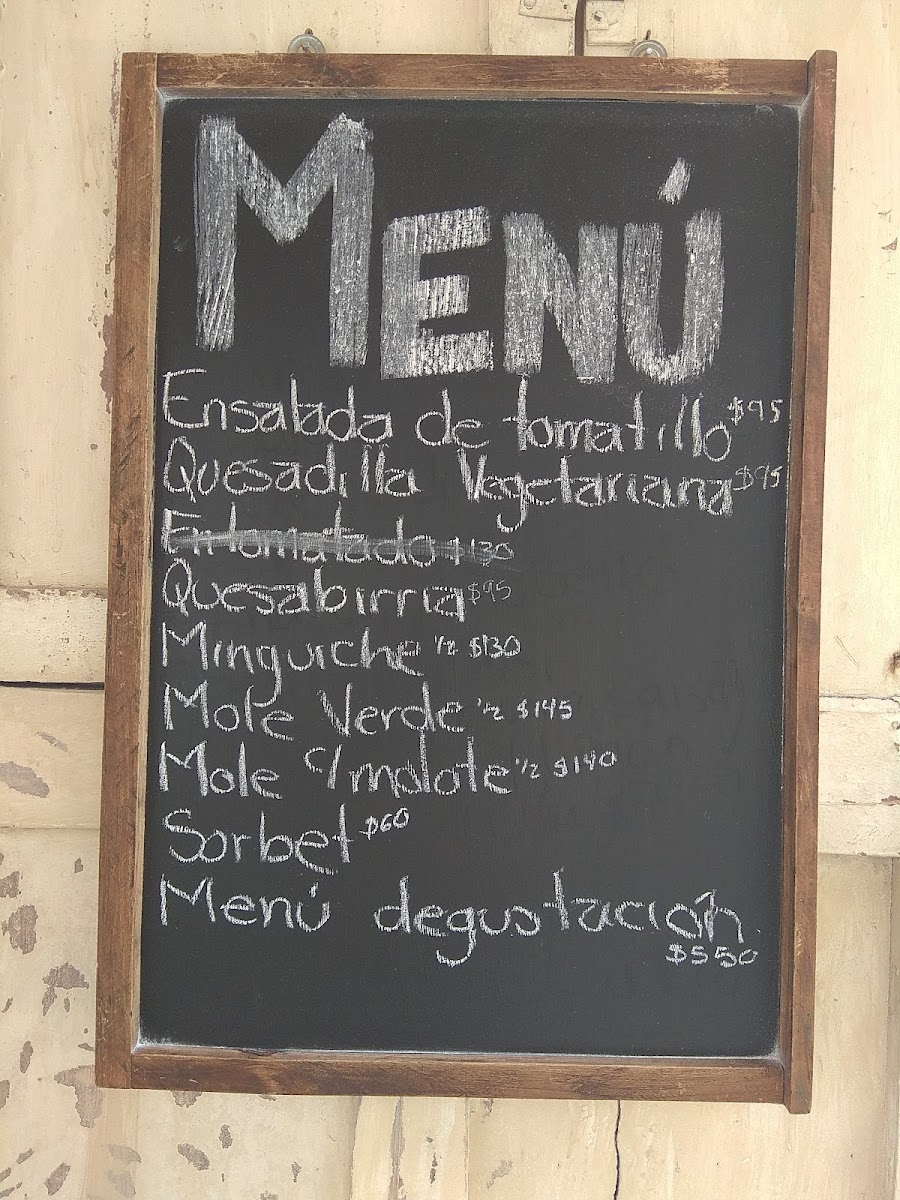 MENÚ
Ensalada de tomatillo $95
Quesadilla Vegetariana $95
Entomatado $130
Quesabirria $95
Minguiche 1/2 $130
Mole Verde 1/2 $145
Mole c/molote 1/2 $140
Sorbet $60
Menú degustación
$550